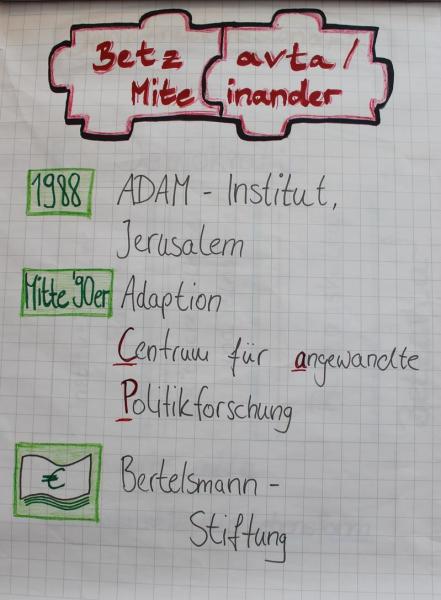 Betzavta /
Miteinander
1988 ADAM - Institut,
Jerusalem
Mitte '90er Adaption
Centrum für angewandte
Politikforschung
€ Bertelsmann -
Stiftung